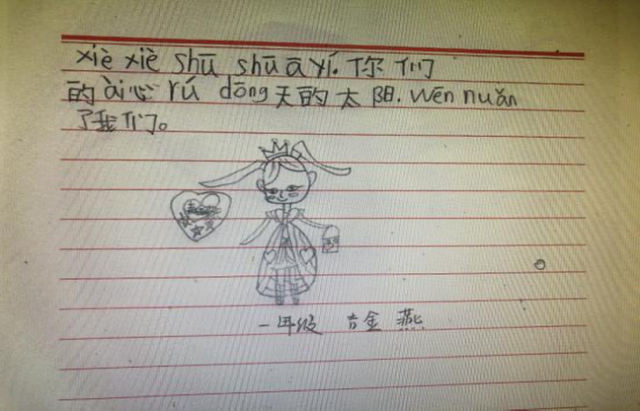 xiè xiè shū shū ā yí. 你们
的 ài心 rú dōng天的太阳. wēn nuǎn
了我们。
一年级 吉金燕